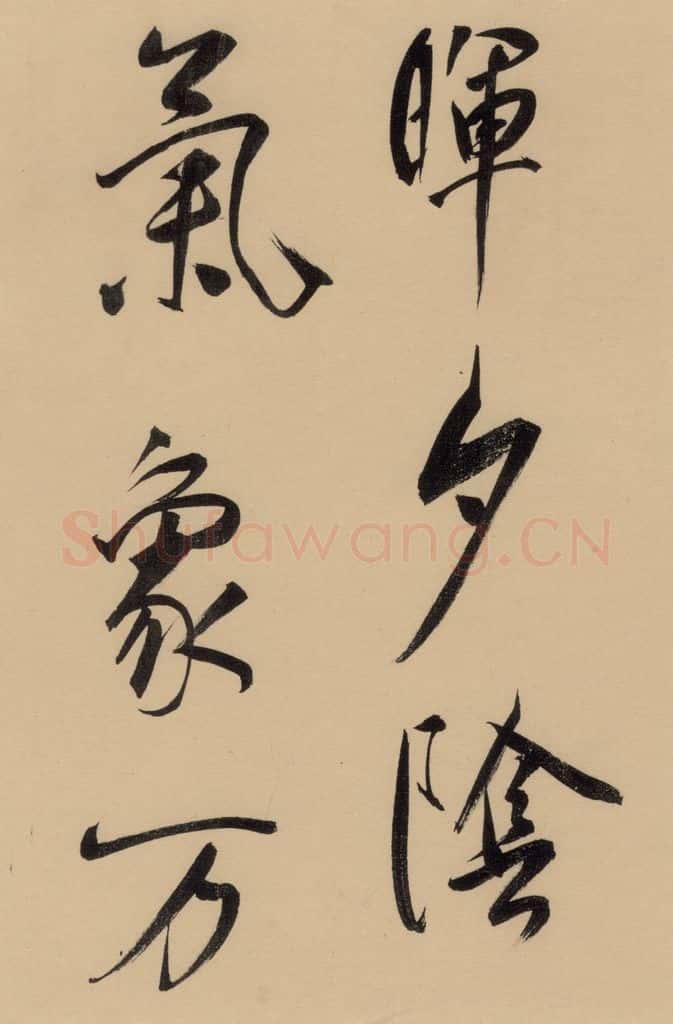 暉夕陰
氣象万
Shufawang.CN